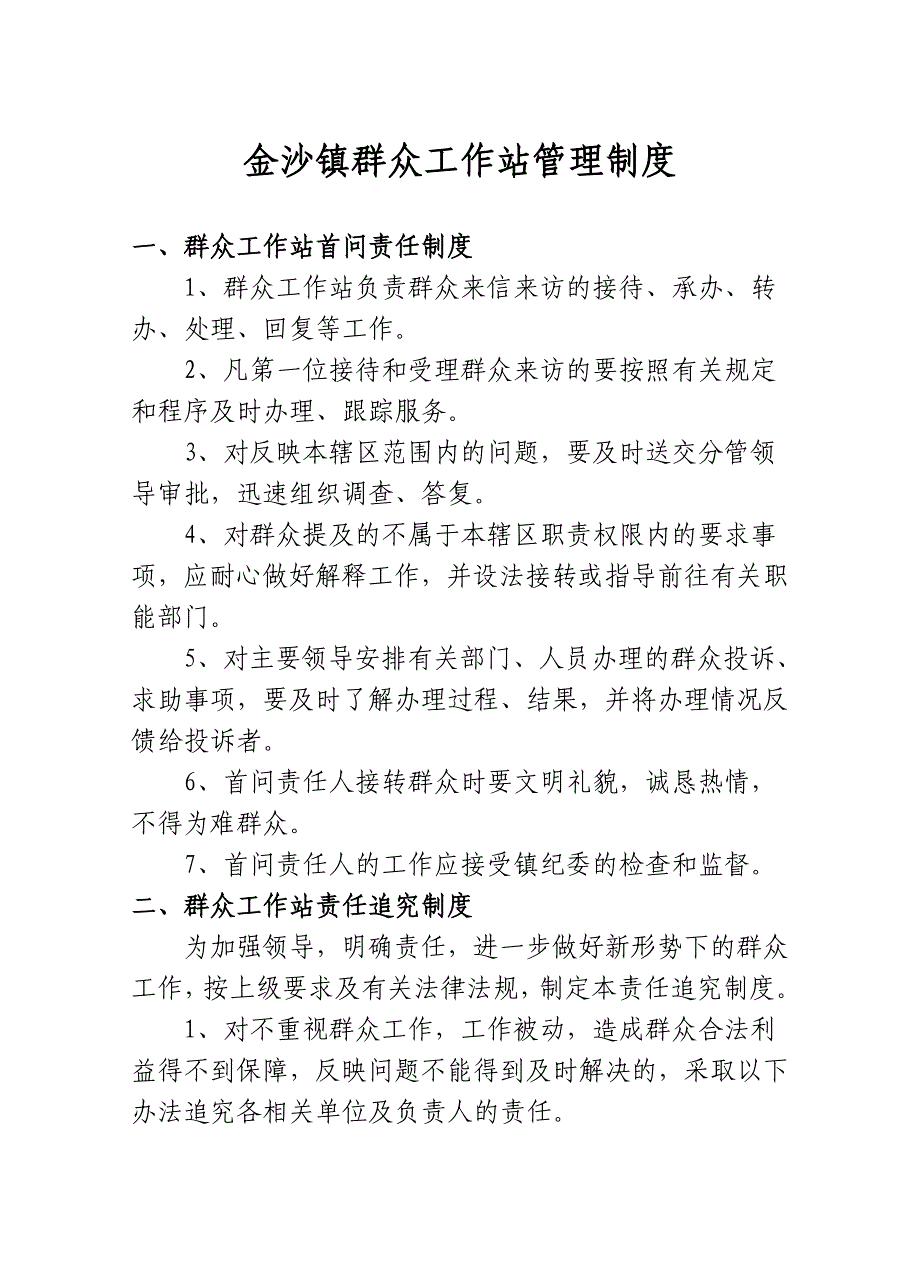 金沙镇群众工作站管理制度
一、群众工作站首问责任制度
1、群众工作站负责群众来信来访的接待、承办、转
办、处理、回复等工作。
2、凡第一位接待和受理群众来访的要按照有关规定
和程序及时办理、跟踪服务。
3、对反映本辖区范围内的问题，要及时送交分管领
导审批，迅速组织调查、答复。
4、对群众提及的不属于本辖区职责权限内的要求事
项，应耐心做好解释工作，并设法接转或指导前往有关职
能部门。
5、对主要领导安排有关部门、人员办理的群众投诉、
求助事项，要及时了解办理过程、结果，并将办理情况反
馈给投诉者。
6、首问责任人接转群众时要文明礼貌，诚恳热情，
不得为难群众。
7、首问责任人的工作应接受镇纪委的检查和监督。
二、群众工作站责任追究制度
为加强领导，明确责任，进一步做好新形势下的群众
工作，按上级要求及有关法律法规，制定本责任追究制度。
1、对不重视群众工作，工作被动，造成群众合法利
益得不到保障，反映问题不能得到及时解决的，采取以下
办法追究各相关单位及负责人的责任。